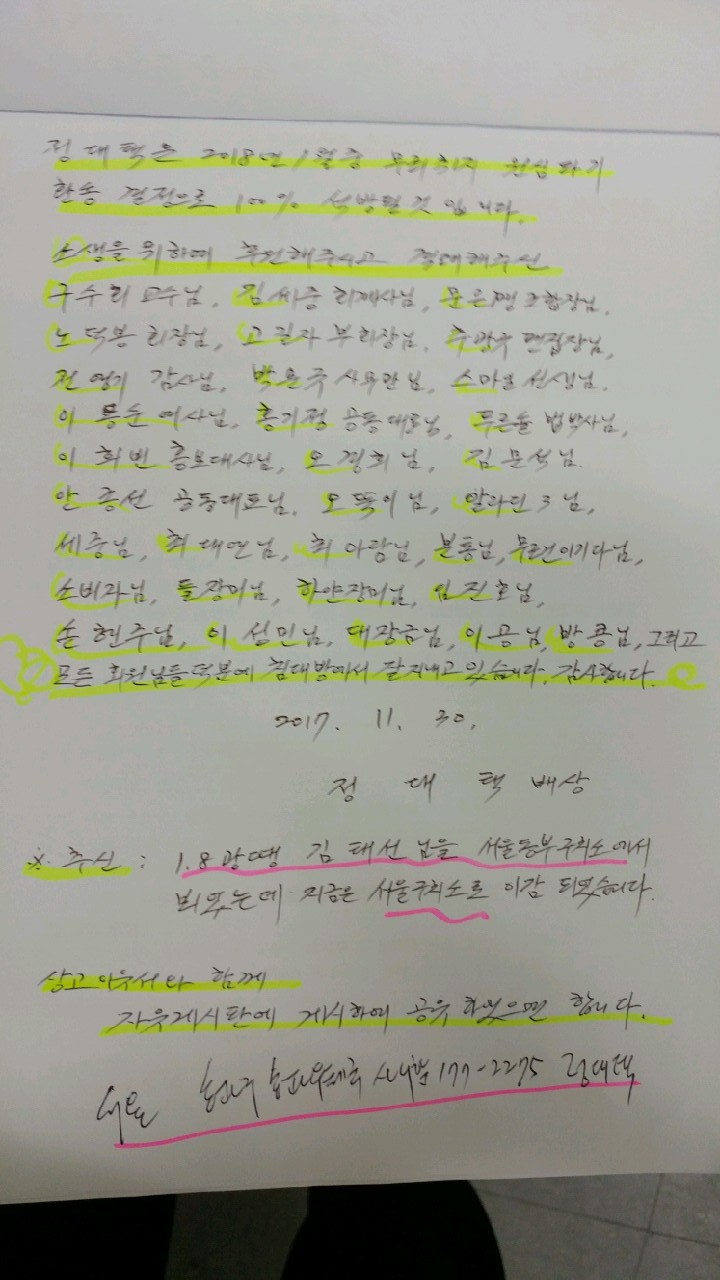 정대택은 2018년 1월중 무죄취지 원심파기
환송 결정으로 100% 석방될것 입니다.
소생을 위하여 후원해주시고 격려해주신
구수회 교수님, 김세중 회계사님, 문은영 조합장님,
노덕봉 회장님, 고길자 부회장님, 추광규 편집장님,
전영기 감사님, 박흥국 사무관님, 스마일 선생님,
이등순 여사님, 홍기정 공동대표님, 푸른솔 법박사님,
이화빈 홍보대사님, 오경희님, 김문석님.
안흥선 공동대표님, 오뚝이님, 알라딘3님,
세중님, 최대연님, 최아랑님, 분통님, 무조건이기다님,
소비자님, 들장미님, 하얀장미님, 임진호님,
손현주님, 이선민님, 대장금님, 이용님, 방룡님, 그리고
모든 회원님들 덕분에 침대방에서 잘지내고 있습니다. 감사합니다.
2017. 11. 30.
정 대 택 배상
※ 추신 : 1.8광땡 김태선 님을 서울동부구치소에서
뵈었는데 지금은 서울구치소로 이감 되었습니다.
상고이유서와 함께
자유게시판에 게시하여 공유 하였으면 합니다.
서울 송파우체국 사서함 177-2275 정대택